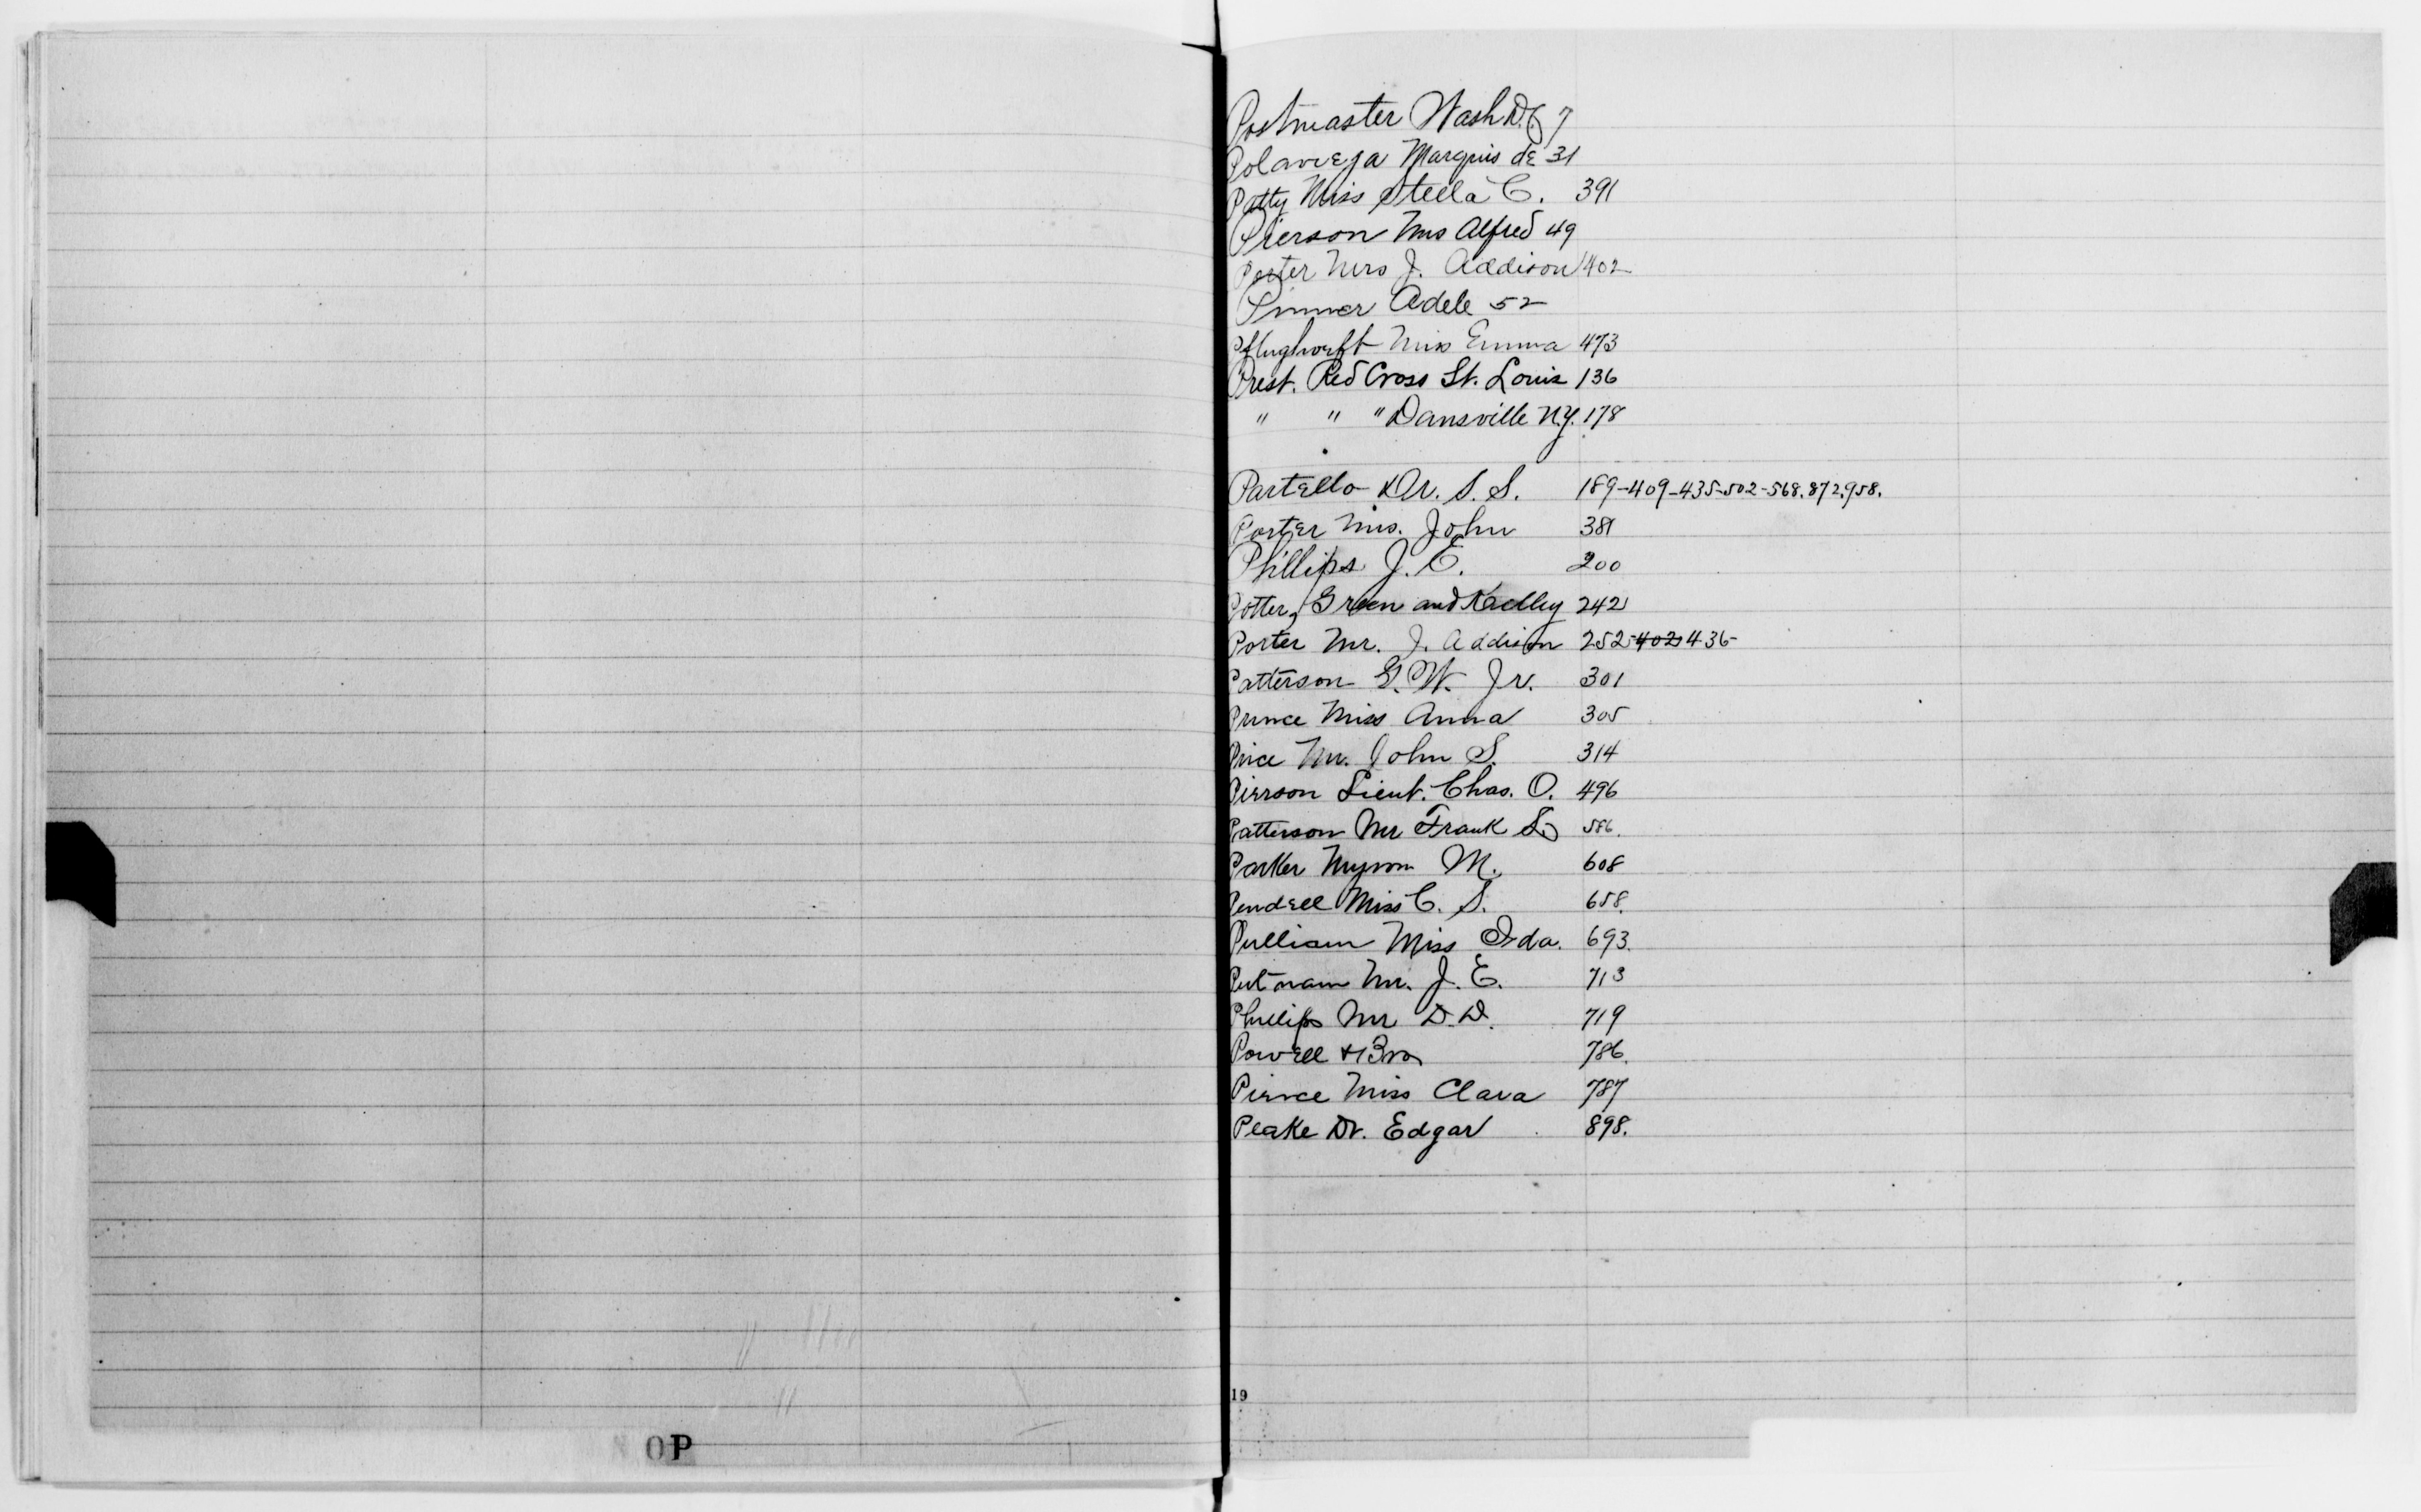 Postmaster Wash D.C. 7
Polavieja Marquis de 31
Patty Miss Stella C. 391
Pierson Mrs Alfred 49
Porter Mrs J. Addison 402
Adele 52
Miss Emma 473
Prest. Red Cross St. Louis 136
" " " Dansville N.Y. 178
Partello Dr. S. S. 189-409-435-502-568.872.958.
Porter Mrs. John 381
Phillips J. E. 200
Potter, Green and Kelley 242
Porter Mr. J. Addison 252-402-436-
Patterson G. W. Jr. 301
Prince Miss Anna 305
Price Mr. John S. 314
Pierson Lieut. Chas. O. 496
Patterson Mr Frank L. 586.
Parker Myron M. 608
Pendell Miss C. S. 658.
Pulliam Miss Ida. 693.
Putnam Mr. J. E. 713
Phillips Mr D. D. 719
Powell & Bro 786.
Pierce Miss Clara 787
Peake Dr. Edgar 898.
19
N O P